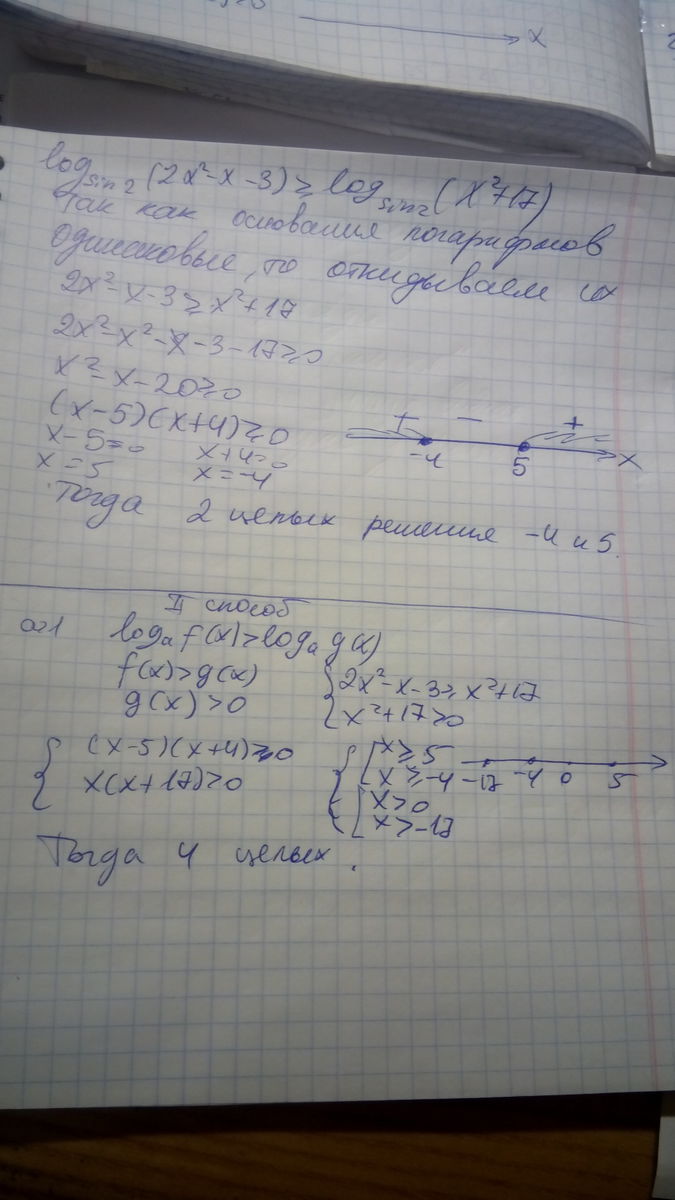 x
log_{sin2}(2x²-x-3) ≥ log_{sin2}(x²+17)
Так как основания логарифмов
одинаковые, то откидываем их
2x²-x-3 ≥ x²+17
2x²-x²-x-3-17≥0
x²-x-20≥0
(x-5)(x+4)≥0
x-5=0 x+4=0
x=5 x=-4
+ - +
-4 5 x
Тогда 2 целых решения -4 и 5.
II способ
a>1 log_a f(x)>log_a g(x)
f(x)>g(x)
g(x)>0
{2x²-x-3≥x²+17
{x²+17≥0
{(x-5)(x+4)≥0
{x(x+17)≥0
{[x≥5
[x≥-4
{[x>0
[x>-17
-17 -4 0 5
Тогда 4 целых.